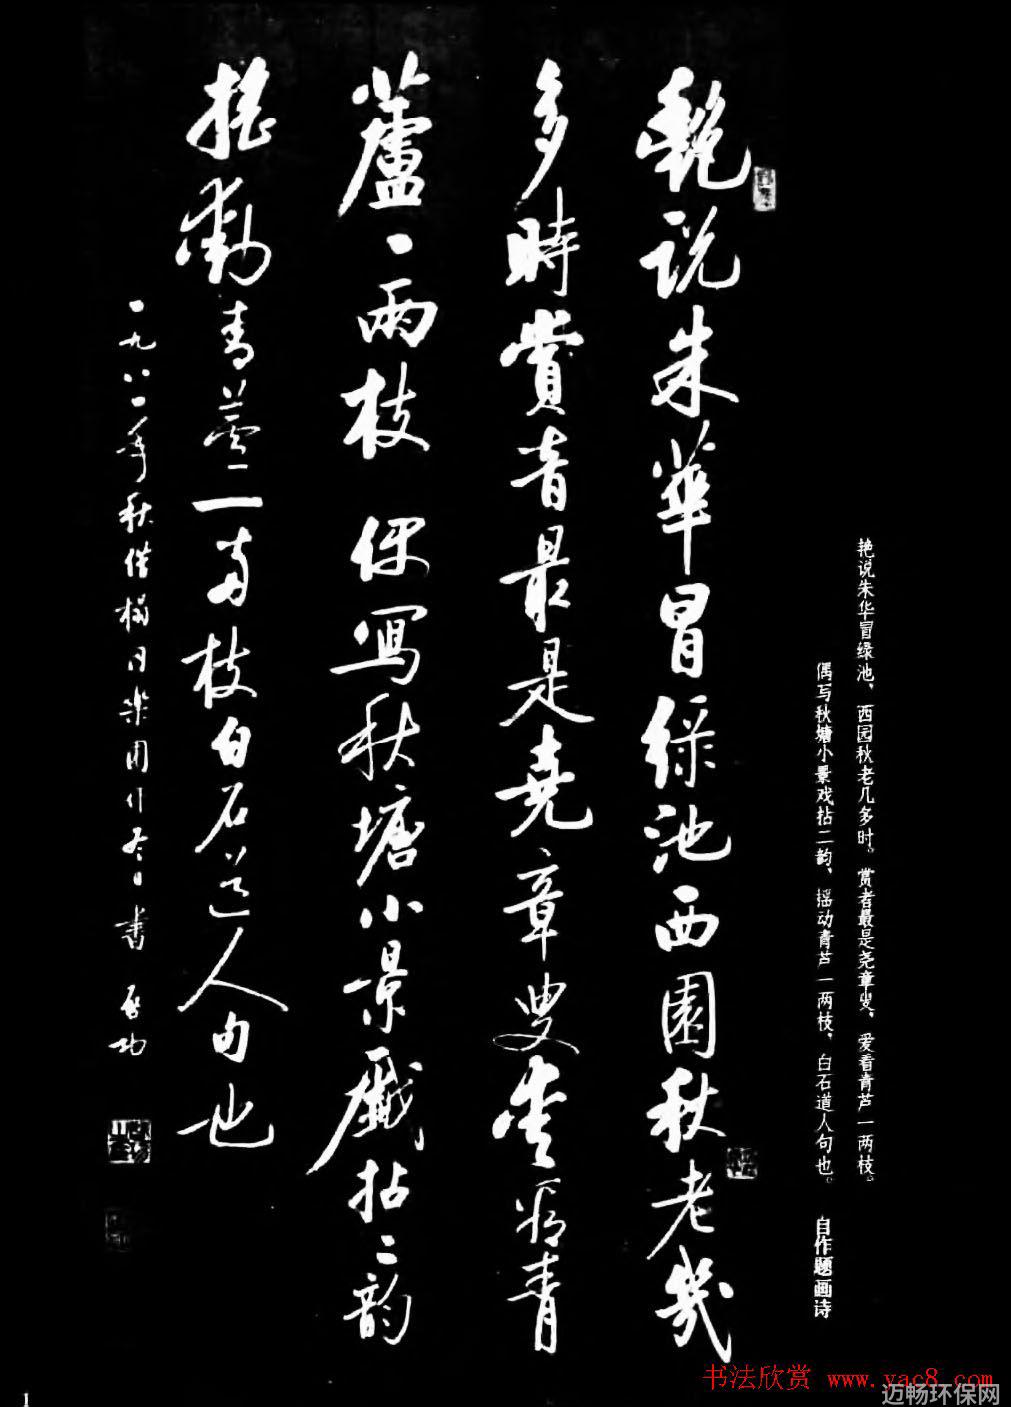 艳说朱华冒绿池，西园秋老几多时。赏者最是尧章叟，爱看青芦一两枝。
偶写秋塘小景戏拈二韵，摇动青芦一两枝，白石道人句也。 自作题画诗
艷说朱華冒綠池西園秋老幾
多時賞音最是堯章叟愛看青
蘆一兩枝 偶寫秋塘小景戲拈二韵
搖動青蘆一兩枝白石道人句也
一九八一年秋借榻同樂園 日書 啟功
1
书法欣赏 www.yac8.com
迈畅环保网